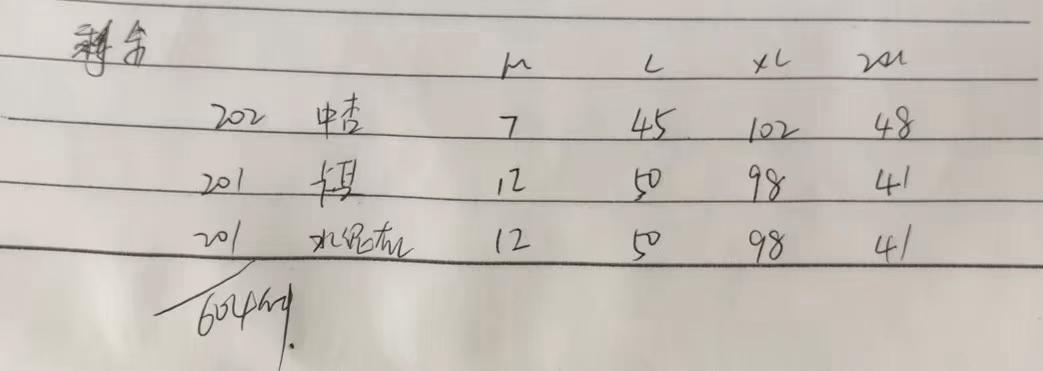 剩余
M L XL 2XL
202 中杏 7 45 102 48
201 卡其 12 50 98 41
201 水泥灰 12 50 98 41
604